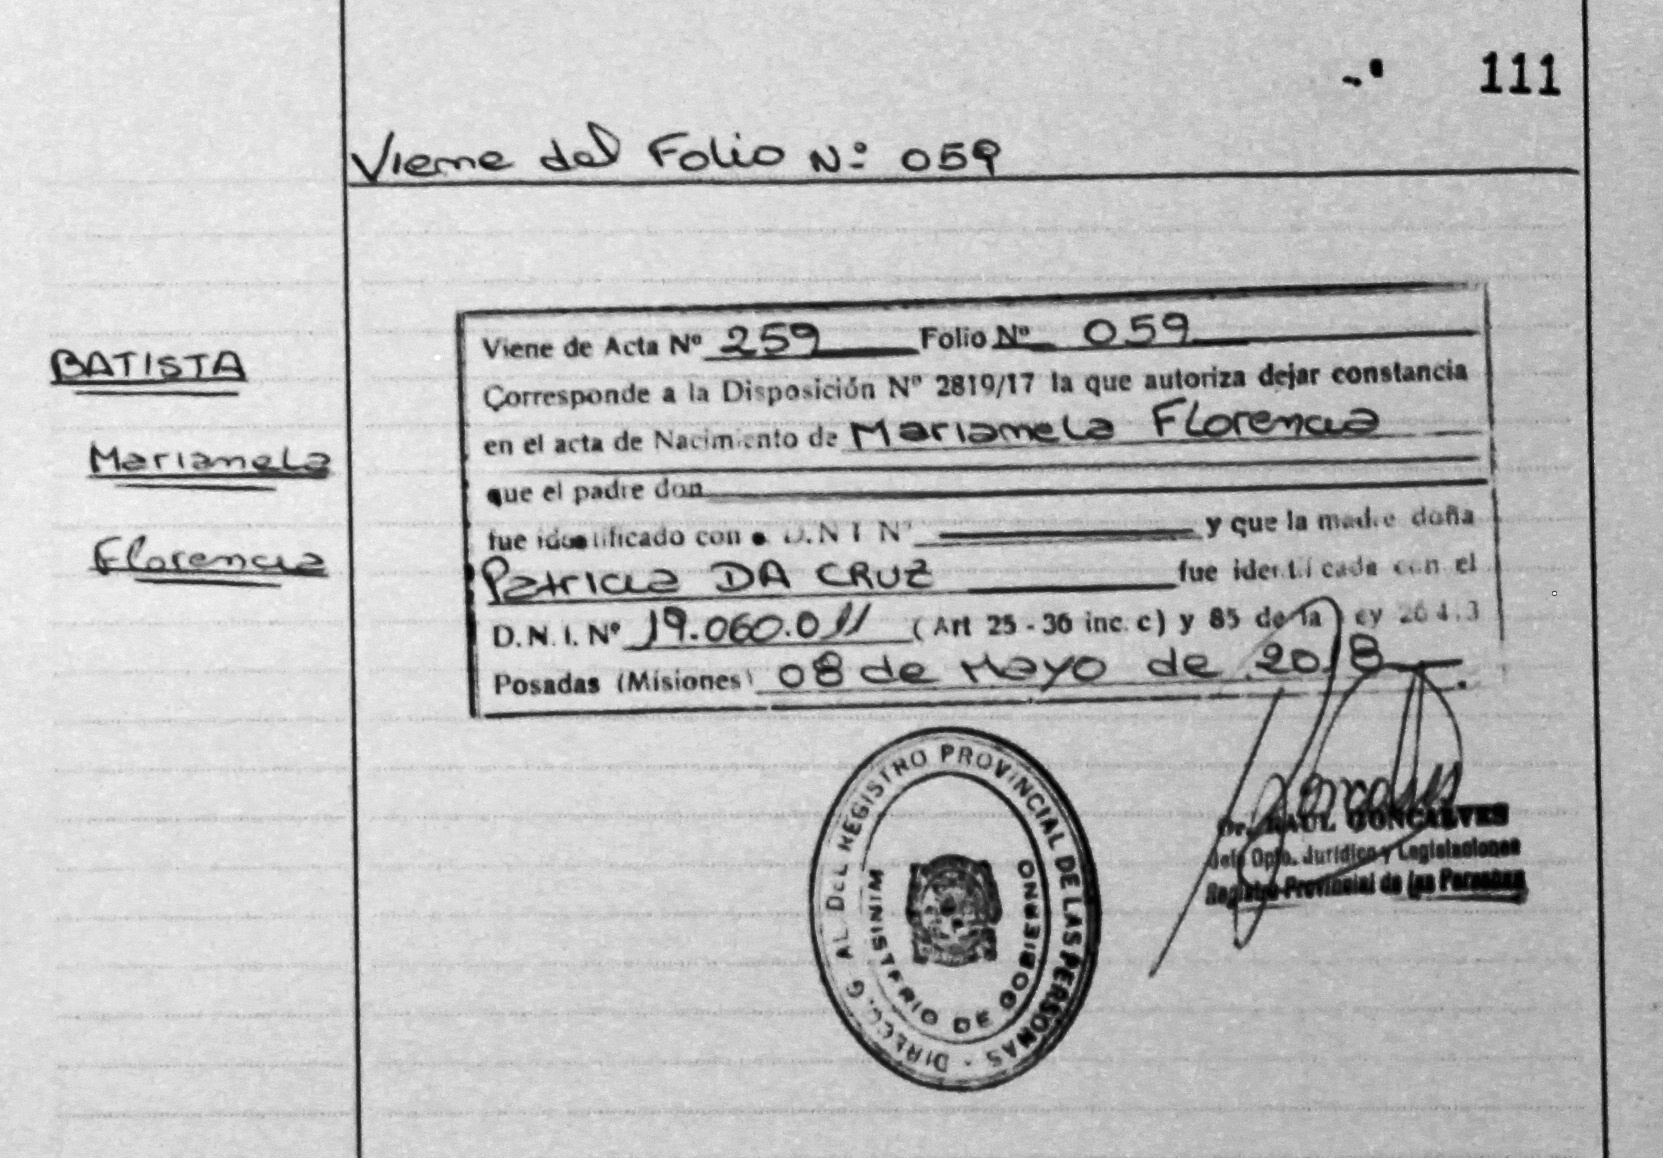 111
Viene del Folio Nº 059
BATISTA
Marianela
Florencia
Viene de Acta Nº 259 Folio Nº 059
Corresponde a la Disposición Nº 2819/17 la que autoriza dejar constancia
en el acta de Nacimiento de Marianela Florencia
que el padre don
fue identificado con D.N.I Nº y que la madre doña
Patricia DA CRUZ fue identificada con el
D.N.I. Nº 19.060.011 (Art 25 - 36 inc. c) y 85 de la ey 26413
Posadas (Misiones) 08 de Mayo de 2018
DIRECC. G AL DEL REGISTRO PROVINCIAL DE LAS PERSONAS -
MINISTERIO DE GOBIERNO
Dr. RAUL GONCALVES
Jefe Dpto. Jurídico y Legislaciones
Registro Provincial de las Personas